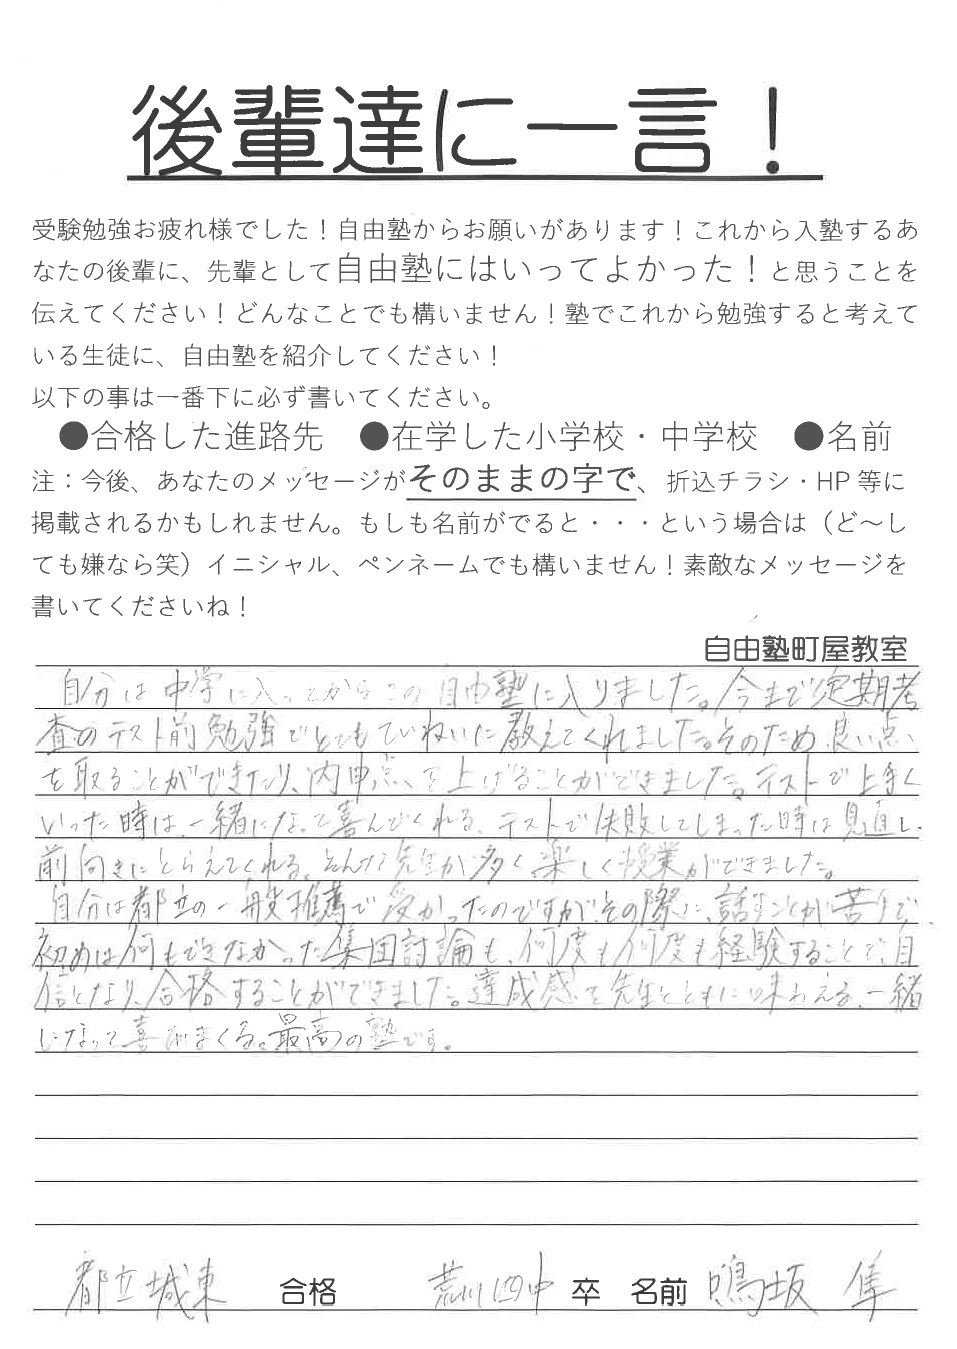 後輩達に一言！
受験勉強お疲れ様でした！自由塾からお願いがあります！これから入塾するあ
なたの後輩に、先輩として自由塾にはいってよかった！と思うことを
伝えてください！どんなことでも構いません！塾でこれから勉強すると考えて
いる生徒に、自由塾を紹介してください！
以下の事は一番下に必ず書いてください。
●合格した進路先　●在学した小学校・中学校　●名前
注：今後、あなたのメッセージがそのままの字で、折込チラシ・HP 等に
掲載されるかもしれません。もしも名前がでると・・・という場合は（ど～し
ても嫌なら笑）イニシャル、ペンネームでも構いません！素敵なメッセージを
書いてくださいね！
自由塾町屋教室
自分は中学に入ってからこの自由塾に入りました。今まで定期考
査のテスト前勉強でとてもていねいに教えてくれました。そのため、良い点
を取ることができたり、内申点を上げることができました。テストで上手く
いった時は、一緒になって喜んでくれる、テストで失敗してしまった時は見直し、
前向きにとらえてくれる。そんな先生が多く、楽しく授業ができました。
自分は都立の一般推薦で受かったのですが、その際に、話すことが苦手で、
初めは何もできなかった集団討論も、何度も何度も経験することで、自
信となり、合格することができました。達成感を先生とともに味わえる、一緒
になって喜びまくる。最高の塾です。
都立城東 合格 荒川四中 卒 名前 鳴坂 隼